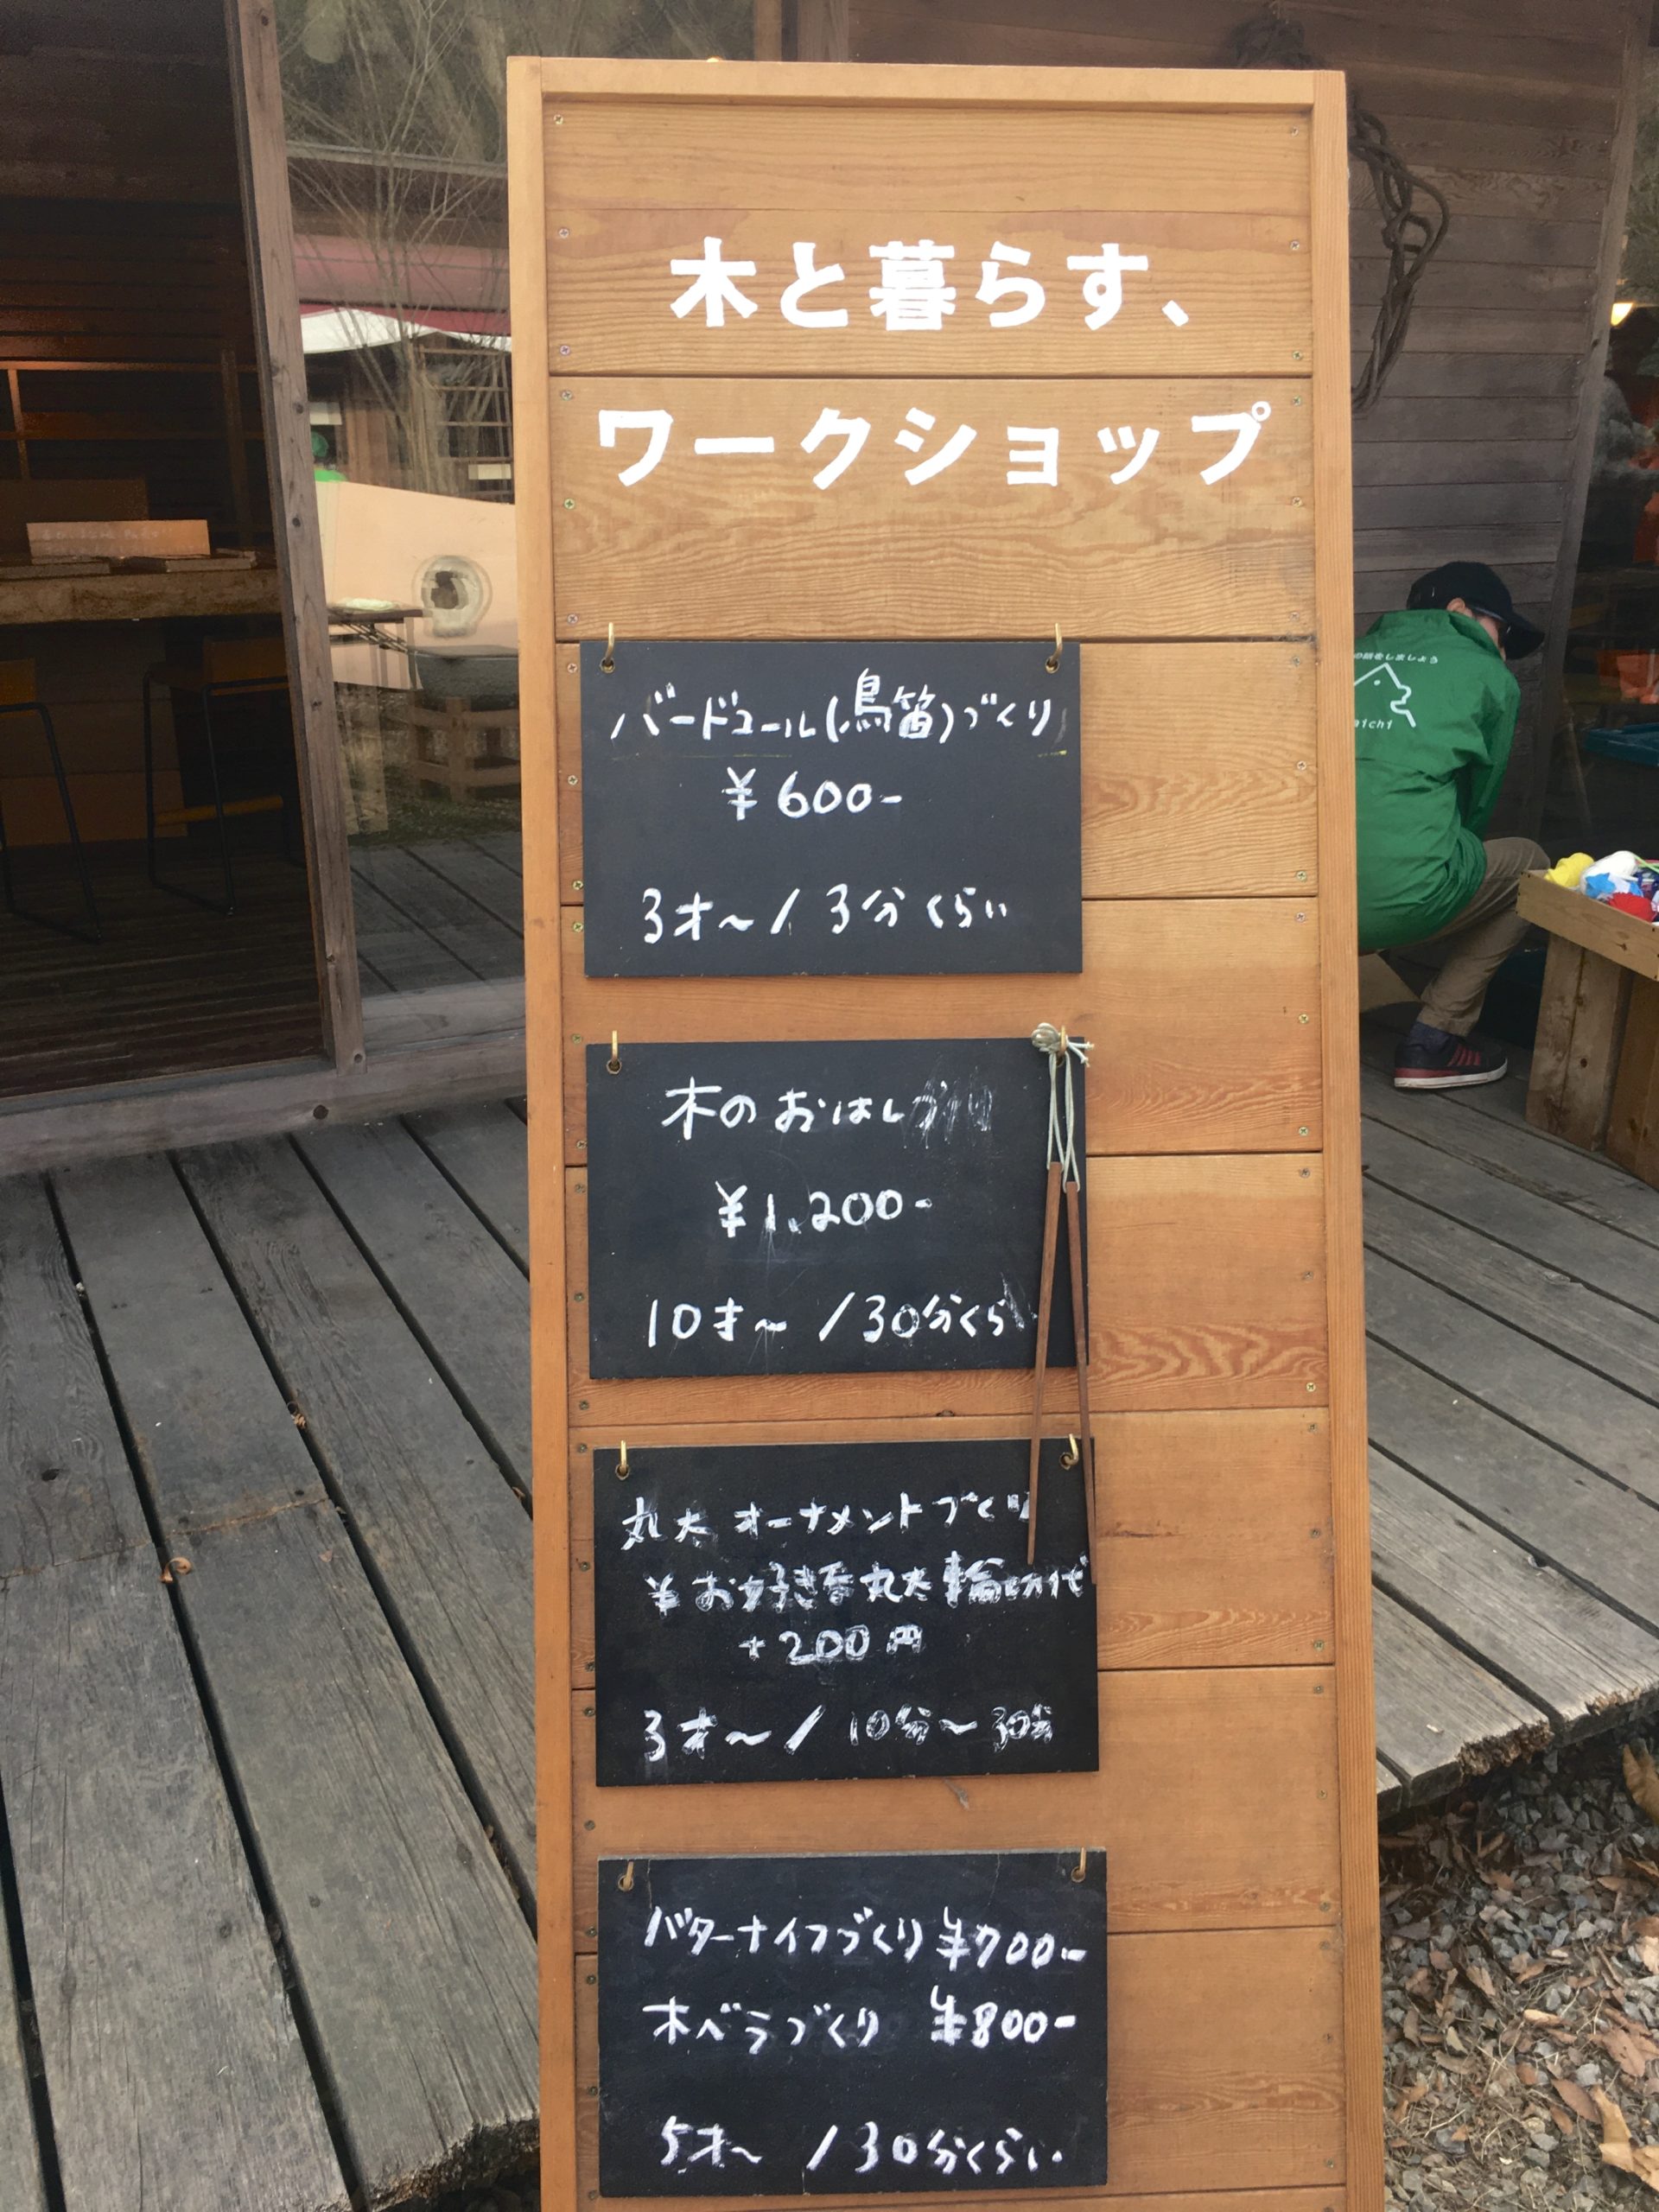 木と暮らす、
ワークショップ
バードコール(鳥笛)づくり
¥600-
3才〜/3分くらい
木のおはしづくり
¥1,200-
10才〜/30分くらい
丸太オーナメントづくり
¥お好きな丸太輪切り代
+200円
3才〜/10分〜30分
バターナイフづくり ¥700-
木ベラづくり ¥800-
5才〜/30分くらい
の話をしましょう
aichi